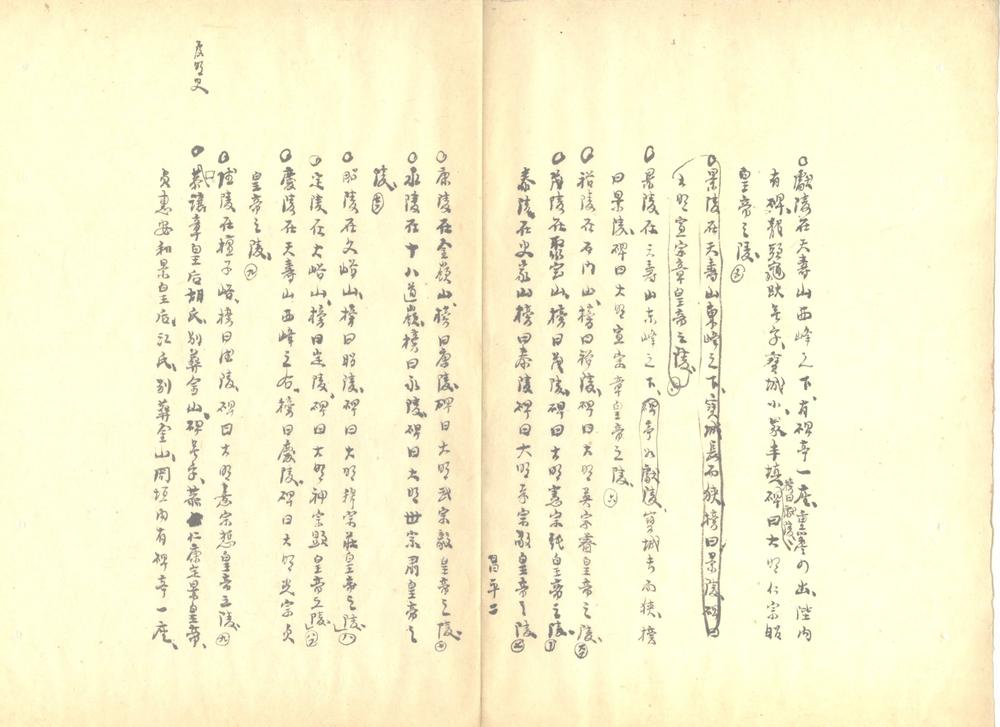 ○獻陵在天壽山西峰之下、有碑亭一座、重簷四出、陛内
有碑、龍頭龜趺無字、寶城小、冢半填、榜曰獻陵、碑曰大明仁宗昭
皇帝之陵、
○景陵在天壽山東峰之下、寶城長而狹、榜曰景陵、碑曰
大明宣宗章皇帝之陵、
○景陵在天壽山東峰之下、碑亭如獻陵、寶城長而狹、榜
曰景陵、碑曰大明宣宗章皇帝之陵、
○裕陵在石門山、榜曰裕陵、碑曰大明英宗睿皇帝之陵、
○茂陵在聚宝山、榜曰茂陵、碑曰大明憲宗純皇帝之陵、
泰陵在史家山、榜曰泰陵、碑曰大明孝宗敬皇帝之陵、
昌平二
○康陵在金嶺山、榜曰康陵、碑曰大明武宗毅皇帝之陵、
○永陵在十八道嶺、榜曰永陵、碑曰大明世宗肅皇帝之
陵、
○昭陵在文峪山、榜曰昭陵、碑曰大明穆宗莊皇帝之陵、
○定陵在大峪山、榜曰定陵、碑曰大明神宗顯皇帝之陵、
○慶陵在天壽山西峰之右、榜曰慶陵、碑曰大明光宗貞
皇帝之陵、
○德陵在檀子峪、榜曰德陵、碑曰大明熹宗悊皇帝之陵、
○恭讓章皇后胡氏、別葬金山、碑無字、恭仁康定景皇帝、
貞惠安和景皇后汪氏、別葬金山、同垣内有碑亭一座、